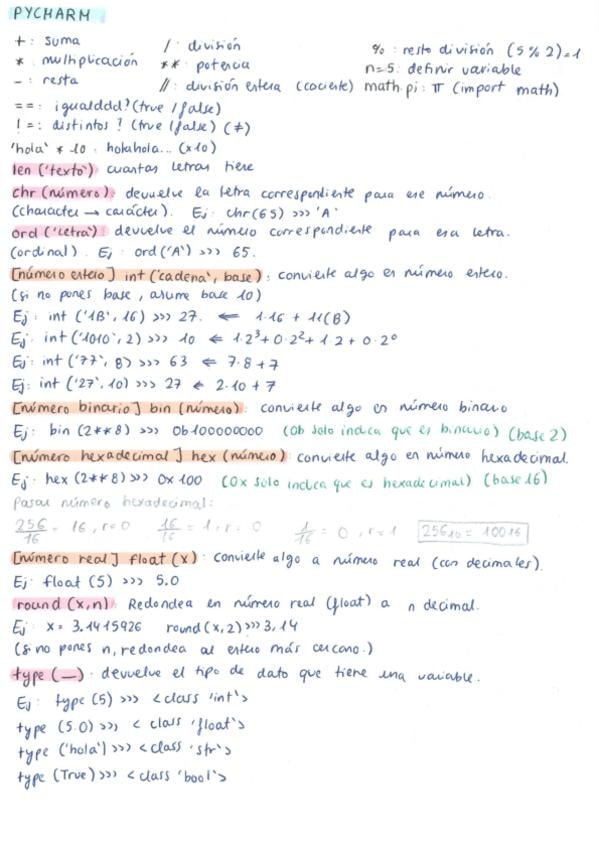 PYCHARM
+ : suma / : división % : resto división (5 % 2) = 1
* . multiplicación ** : potencia n=5 : definir variable
- : resta // : división entera (cociente) math.pi : π (import math)
== : igualddd? (true / false)
! = : distintos ? (true / false) (≠)
'hola' * 10 : holahola... (x10)
len ('texto') cuantas letras tiene
chr (número) : devuelve la letra correspondiente para ese número.
(character → carácter). Ej : chr(65) >>> 'A'
ord ('letra') devuelve el número correspondiente para esa letra.
(ordinal). Ej : ord('A') >>> 65.
[número entero] int ('cadena', base) : convierte algo en número entero.
(si no pones base, asume base 10)
Ej : int ('1B', 16) >>> 27. ⇐ 1·16 + 11(B)
Ej : int ('1010', 2) >>> 10 ⇐ 1·2³+0·2²+1·2+0·2⁰
Ej : int ('77', 8) >>> 63 ⇐ 7·8+7
Ej : int ('27', 10) >>> 27 ⇐ 2·10+7
[número binario] bin (número) : convierte algo en número binario
Ej : bin (2**8) >>> 0b100000000 (0b solo indica que es binario) (base 2)
[número hexadecimal] hex (número) : convierte algo en número hexadecimal.
Ej : hex (2**8) >>> 0x 100 (0x solo indica que es hexadecimal) (base 16)
Pasar número hexadecimal :
256/16 = 16, r=0 16/16 = 1, r = 0 1/16 = 0, r=1 256₁₀ = 100₁₆
[número real] float (x) : convierte algo a número real (con decimales).
Ej : float (5) >>> 5.0
round (x,n) : Redondea en número real (float) a n decimal.
Ej : x = 3.1415926 round (x,2) >>> 3,14
(si no pones n, redondea al entero más cercano.)
type (—) · devuelve el tipo de dato que tiene una variable.
Ej : type (5) >>> <class 'int'>
type (5.0) >>> < class 'float'>
type ('hola') >>> <class 'str'>
type (True) >>> <class 'bool'>